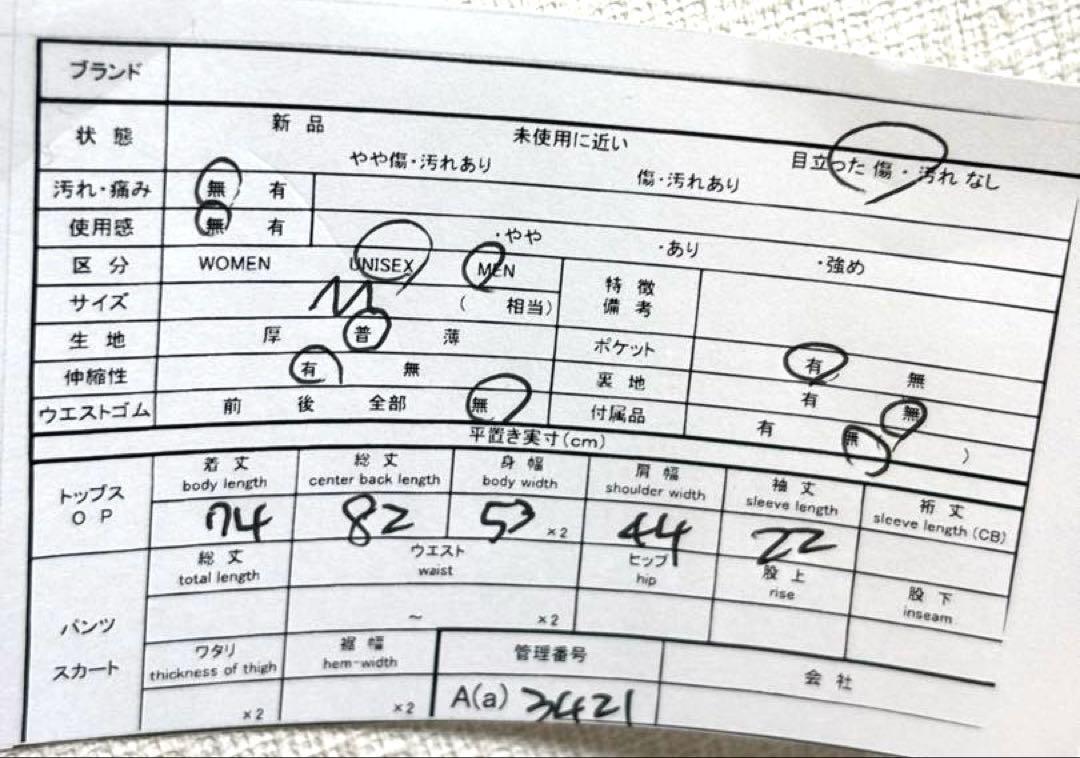 ブランド
状態 新品 未使用に近い 目立った傷・汚れなし
やや傷・汚れあり 傷・汚れあり
汚れ・痛み 無 有
使用感 無 有 ・やや ・あり ・強め
区分 WOMEN UNISEX MEN 特徴
サイズ M ( 相当) 備考
生地 厚 普 薄 ポケット 有 無
伸縮性 有 無 裏地 有 無
ウエストゴム 前 後 全部 無 付属品 有 無 )
平置き実寸(cm)
トップス 着丈 総丈 身幅 肩幅 袖丈 裄丈
OP body length center back length body width shoulder width sleeve length sleeve length (CB)
74 82 53 ×2 44 22
総丈 ウエスト ヒップ 股上 股下
total length waist hip rise inseam
パンツ ~ ×2
スカート ワタリ 裾幅 管理番号 会社
thickness of thigh hem-width
×2 ×2 A(a) 3421